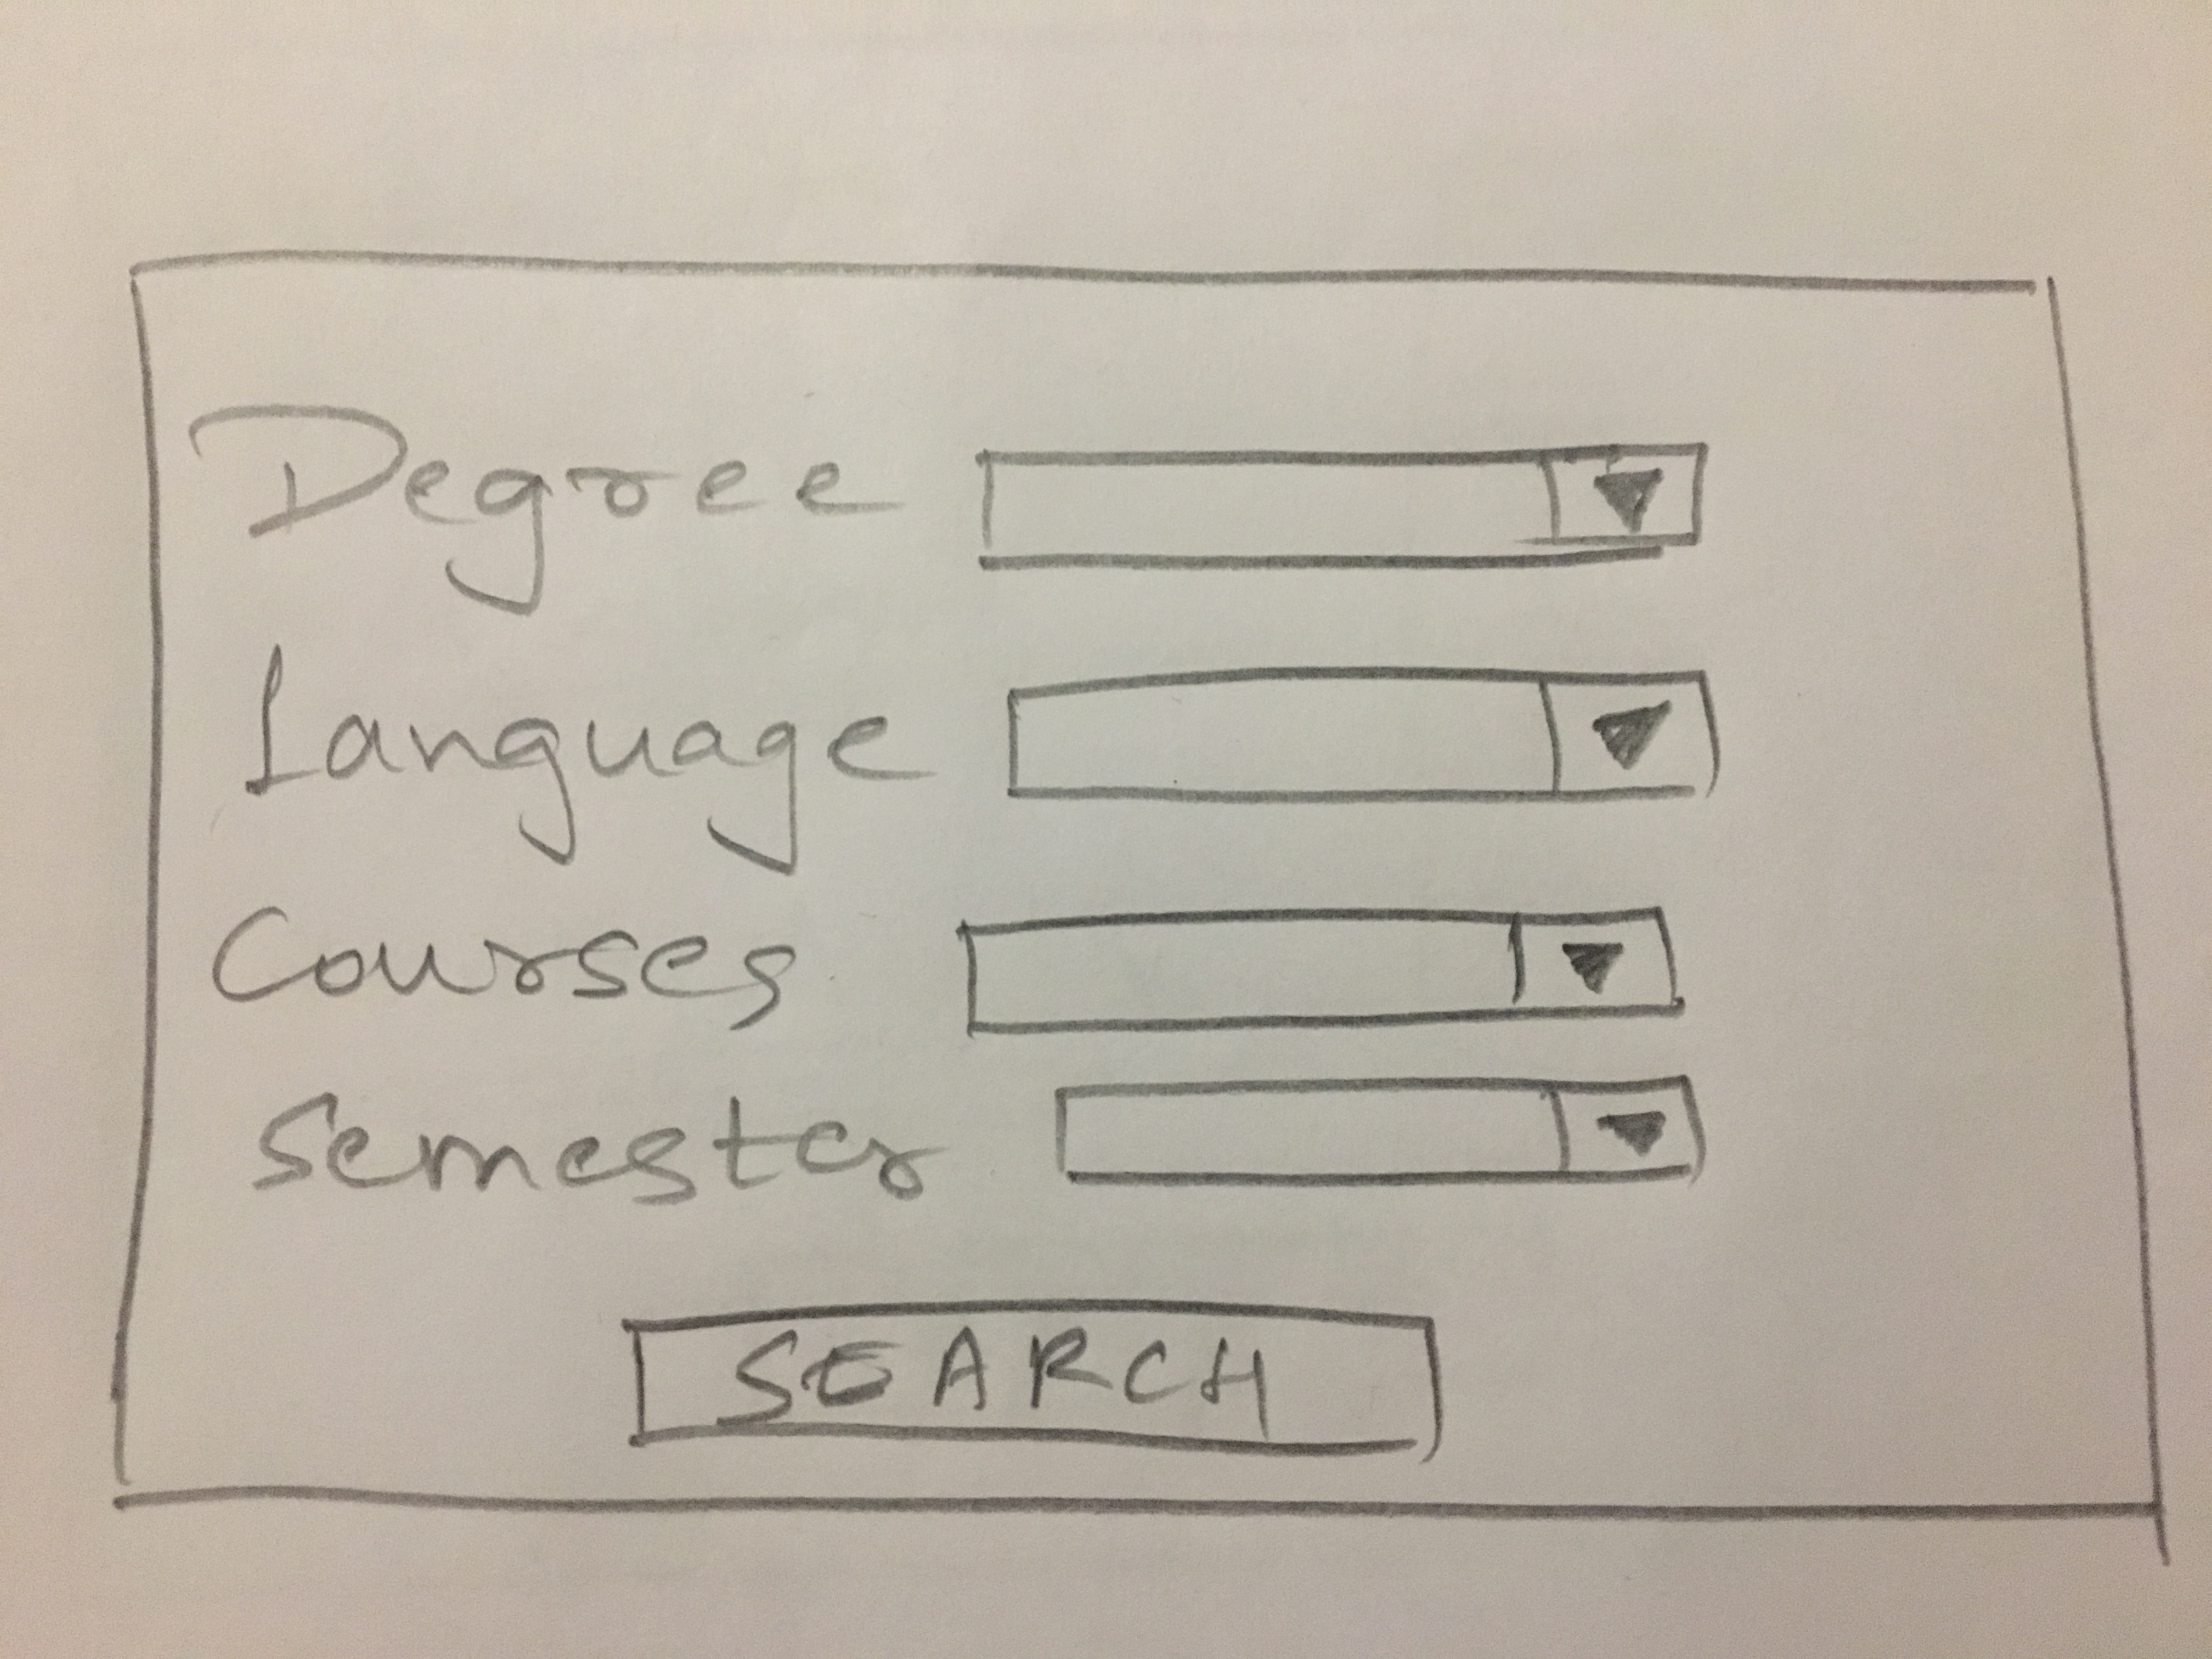 Degree
Language
Courses
Semester
SEARCH